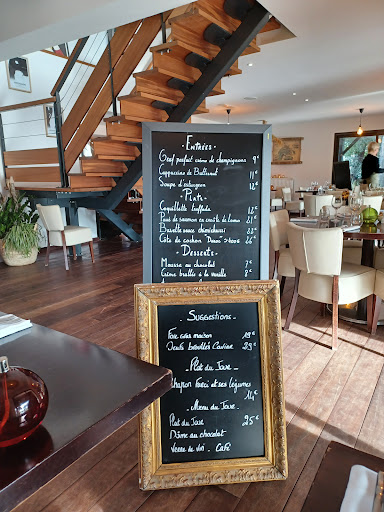 - Entrées -
Œuf parfait crème de champignons 9€
Cappuccino de Butternut 11€
Soupe d'esturgeon 12€
- Plats -
Coquillette truffade
Pavé de saumon
Bavette sauce chimichurri
Côte de cochon
- Desserts -
Mousse au chocolat 7€
Crème brûlée à la vanille
- Suggestions -
Foie gras maison 19€
Oeufs brouillés Caviar 29€
- Plat du Jour -
Chapon farci et ses légumes
16€
- Menu du Jour -
Plat du Jour 25€
Dôme au chocolat
Verre de vin - Café